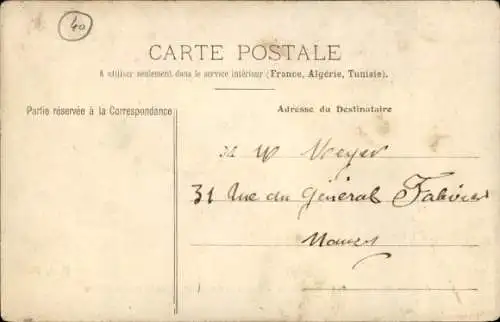 40
CARTE POSTALE
A utiliser seulement dans le service intérieur (France, Algérie, Tunisie).
Partie réservée à la Correspondance
Adresse du Destinataire
Meyer
31 Rue du Général Fabvier
Nancy